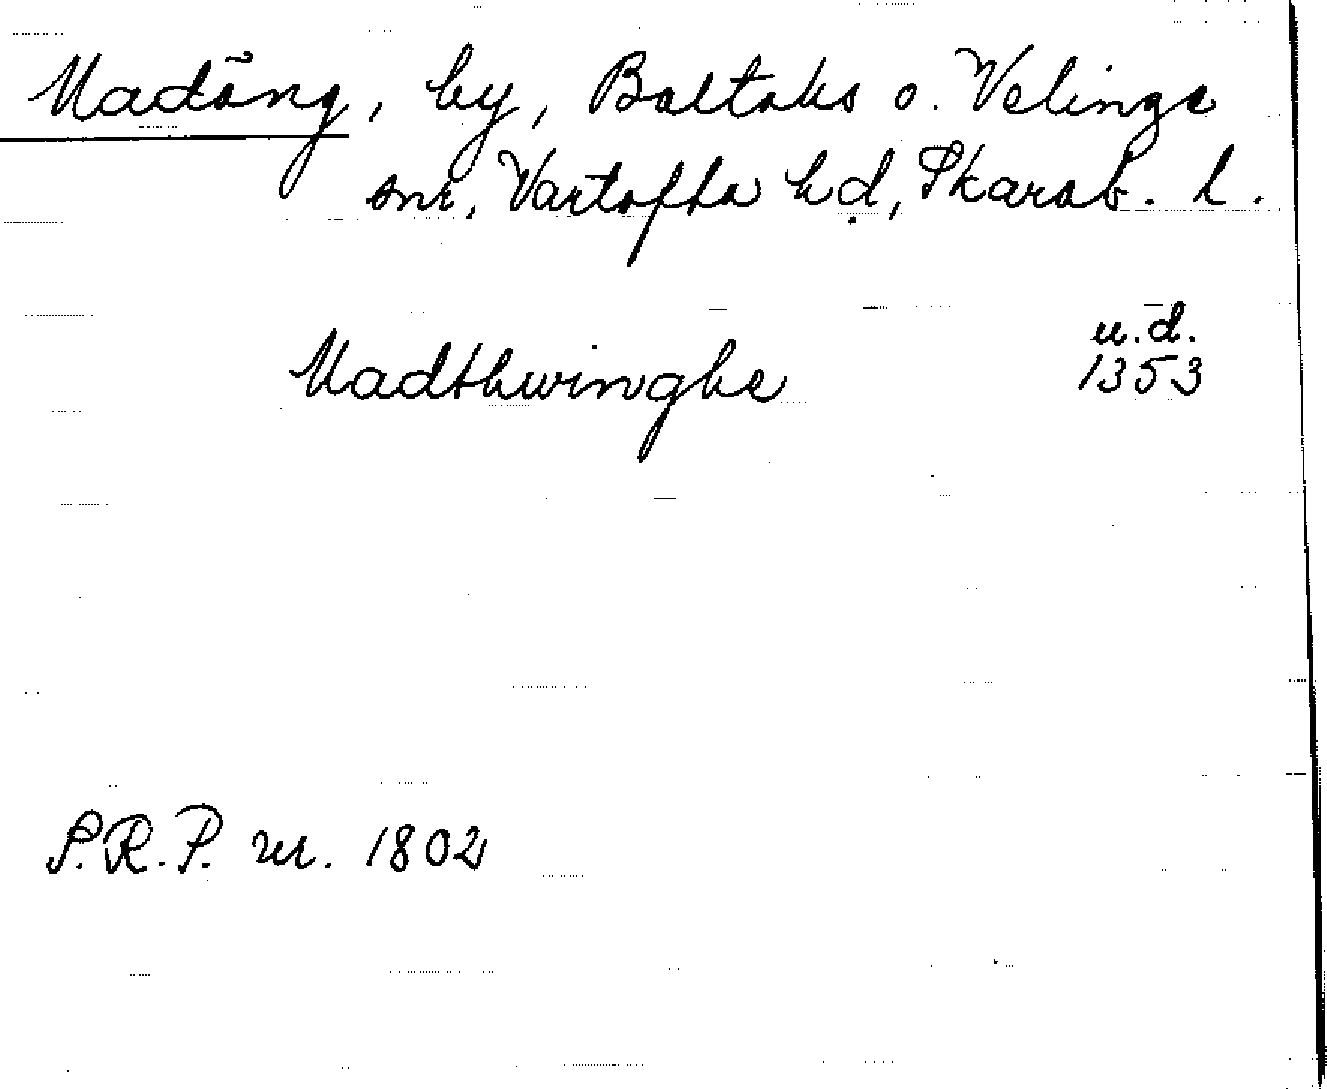 Madäng, by, Baltaks o. Velinge
snr, Vartofta hd, Skarab. l.
u.d.
Madthwinghe 1353
S.R.P. nr. 1802